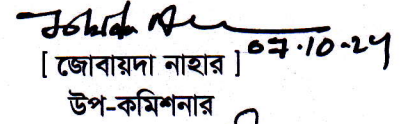 07.10.24
[ জোবায়দা নাহার ]
উপ-কমিশনার